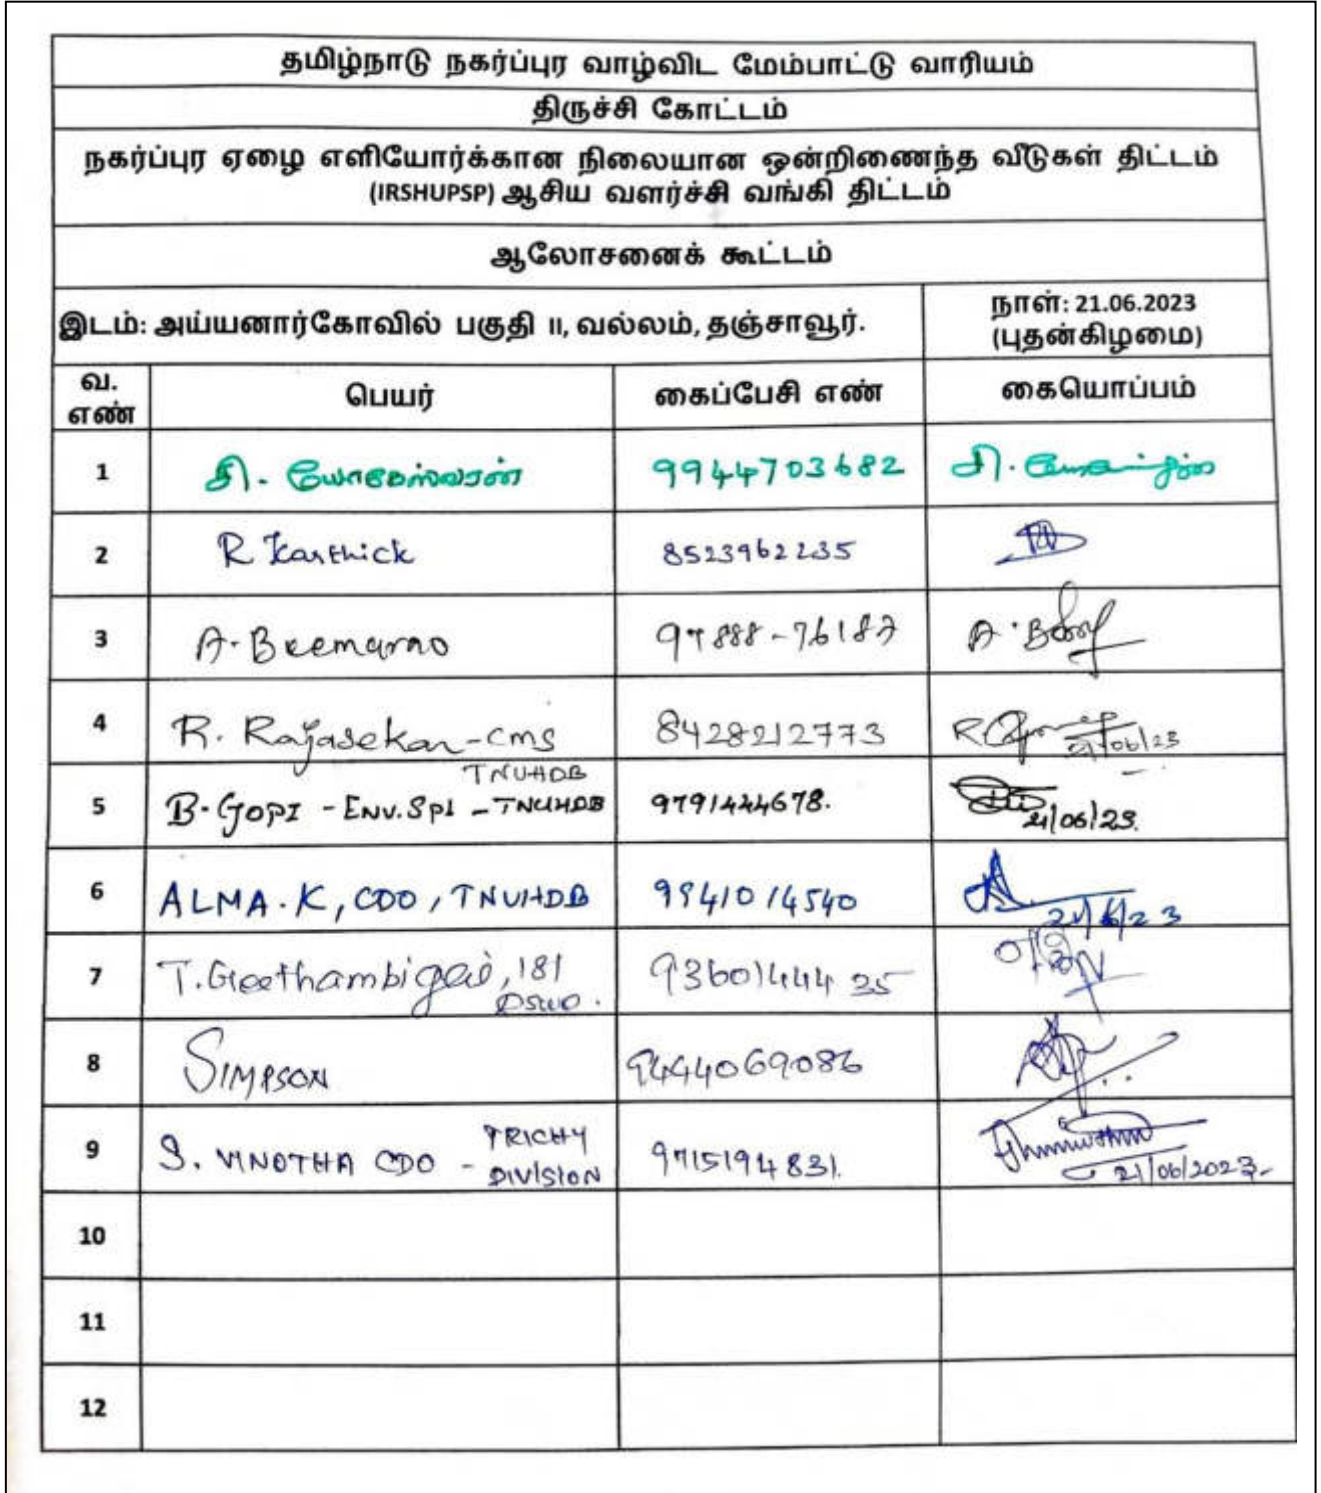 தமிழ்நாடு நகர்ப்புர வாழ்விட மேம்பாட்டு வாரியம்
திருச்சி கோட்டம்
நகர்ப்புர ஏழை எளியோர்க்கான நிலையான ஒன்றிணைந்த வீடுகள் திட்டம்
(IRSHUPSP) ஆசிய வளர்ச்சி வங்கி திட்டம்
ஆலோசனைக் கூட்டம்
இடம்: அய்யனார்கோவில் பகுதி II, வல்லம், தஞ்சாவூர்.
நாள்: 21.06.2023
(புதன்கிழமை)
வ.
எண்
பெயர்
கைப்பேசி எண்
கையொப்பம்
1 சி. யோகேஸ்வரன் 9944703682 சி.
2 R Karthick 8523962235
3 A. Beemarao 97888-76187 A.
4 R. Rajasekar - CMS 8428212773 21/06/23
TNUHDB
5 B. GOPI - ENV. SPl - TNUHDB 9791444678. 21/06/23.
6 ALMA. K, CDO, TNUHDB 9941014540 21/6/23
7 T. Geethambigai, 181 9360144435
DSWO.
8 SIMPSON 9444069086
9 S. VINOTHA CDO - TRICHY 9715194831.
DIVISION 21/06/2023
10
11
12